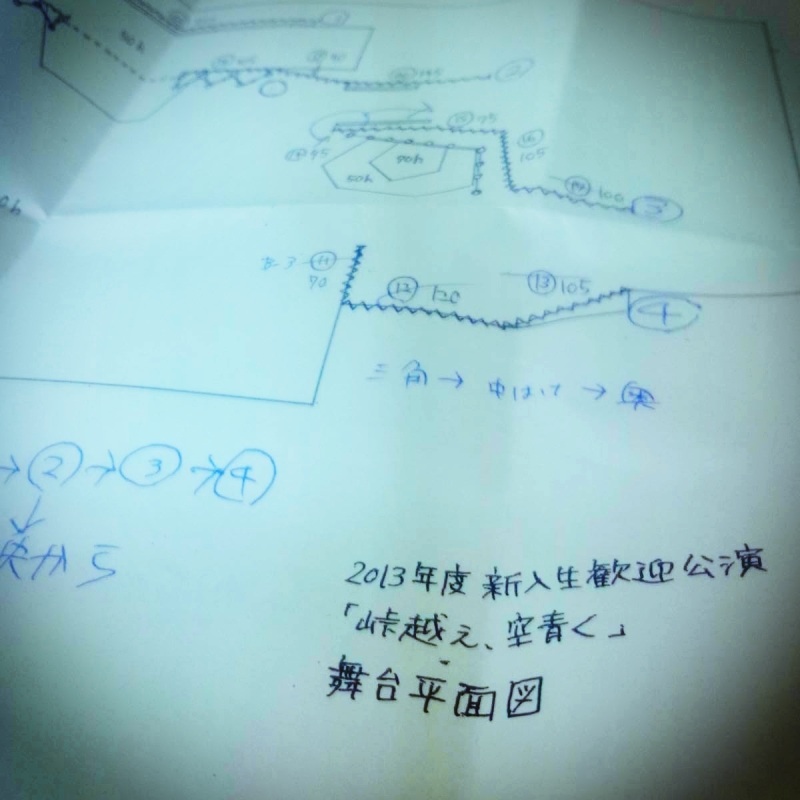 50h
2
15 75
16
105
14 45
90h
50h
100
3
0h
11
70
12 120
13 105
4
三角→中はけ→奥
→②→③→④
から
2013年度 新入生歓迎公演
「峠越え、空青く」
舞台平面図